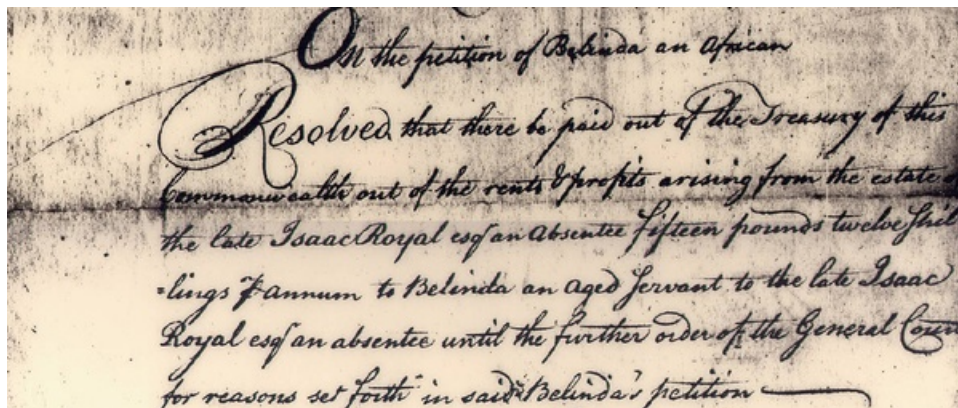 On the petition of Belinda an African
Resolved that there be paid out of the Treasury of this
Commonwealth out of the rents & profits arising from the estate of
the late Isaac Royal esqr an absentee fifteen pounds twelve shil
=lings ⅌ annum to Belinda an aged servant to the late Isaac
Royal esqr an absentee until the further order of the General Court
for reasons set forth in said Belinda's petition